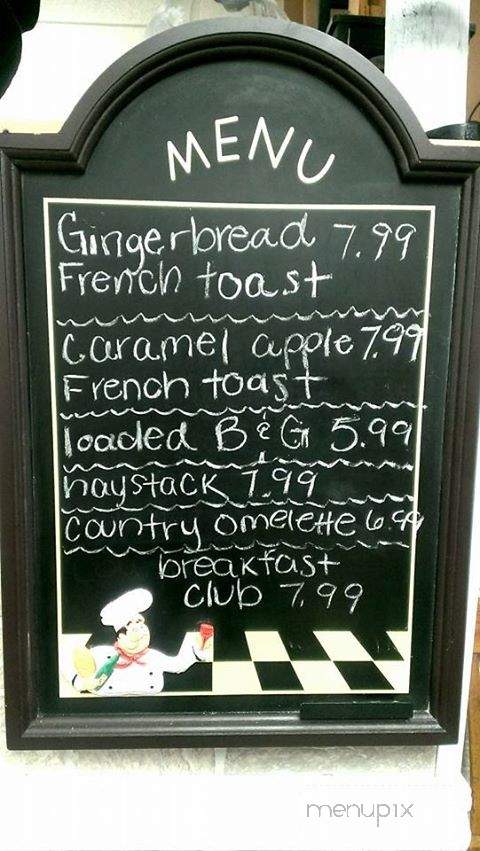 MENU
Gingerbread 7.99
French toast
Caramel apple 7.99
French toast
loaded B & G 5.99
haystack 7.99
country omelette 6.99
breakfast
club 7.99
menupix